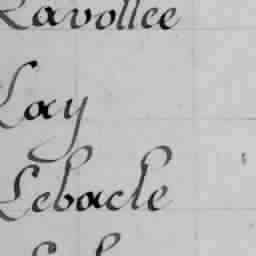 Lavollée
Lay
Lebacle